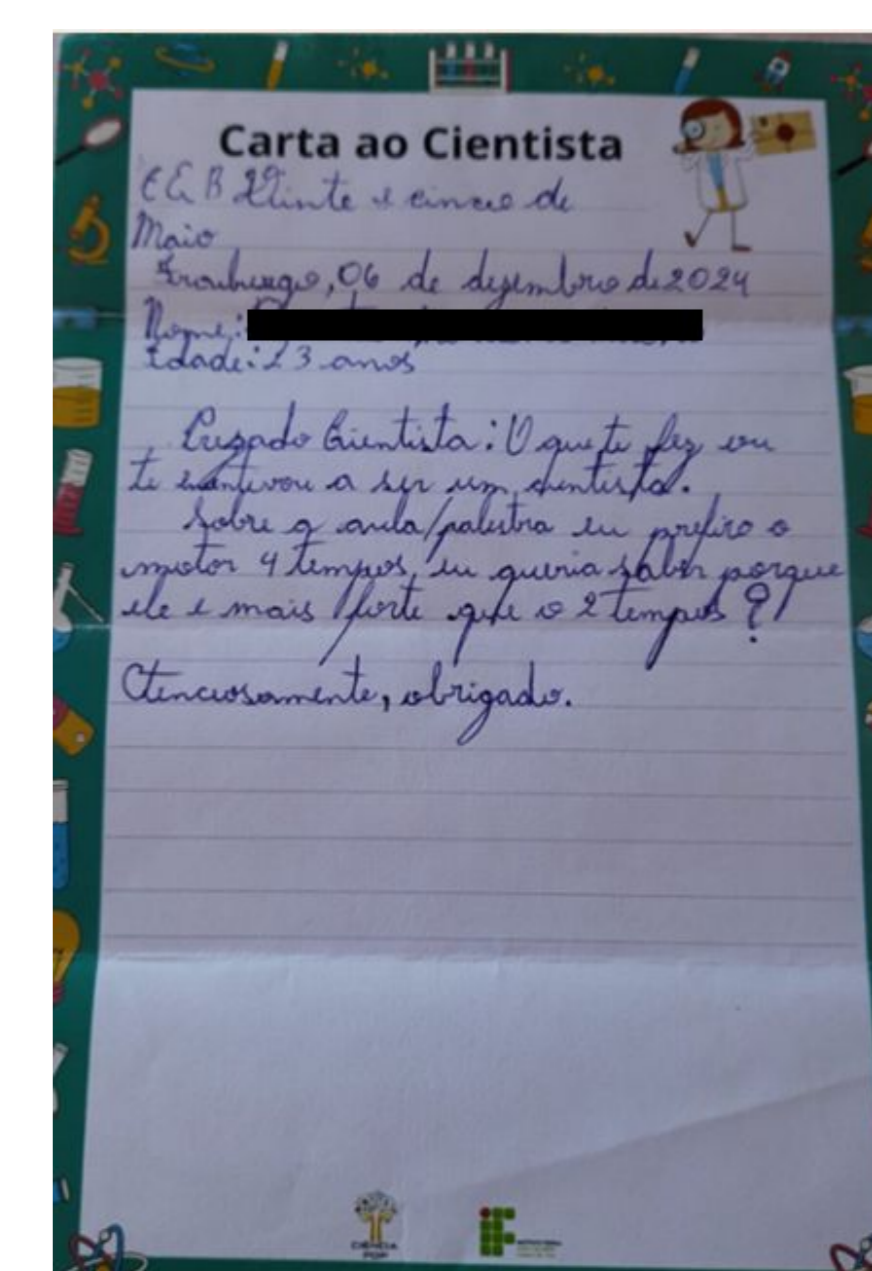 Carta ao Cientista
E E B Vinte e cinco de
Maio
Fraiburgo, 06 de dezembro de 2024
Nome:
Idade: 13 anos
Prezado Cientista: O que te fez ou
te insentivou a ser um cientista.
Sobre a aula/palestra eu prefiro o
motor 4 tempos, eu queria saber porque
ele e mais forte que o 2 tempos?
Atenciosamente, obrigado.
CIÊNCIA
POP